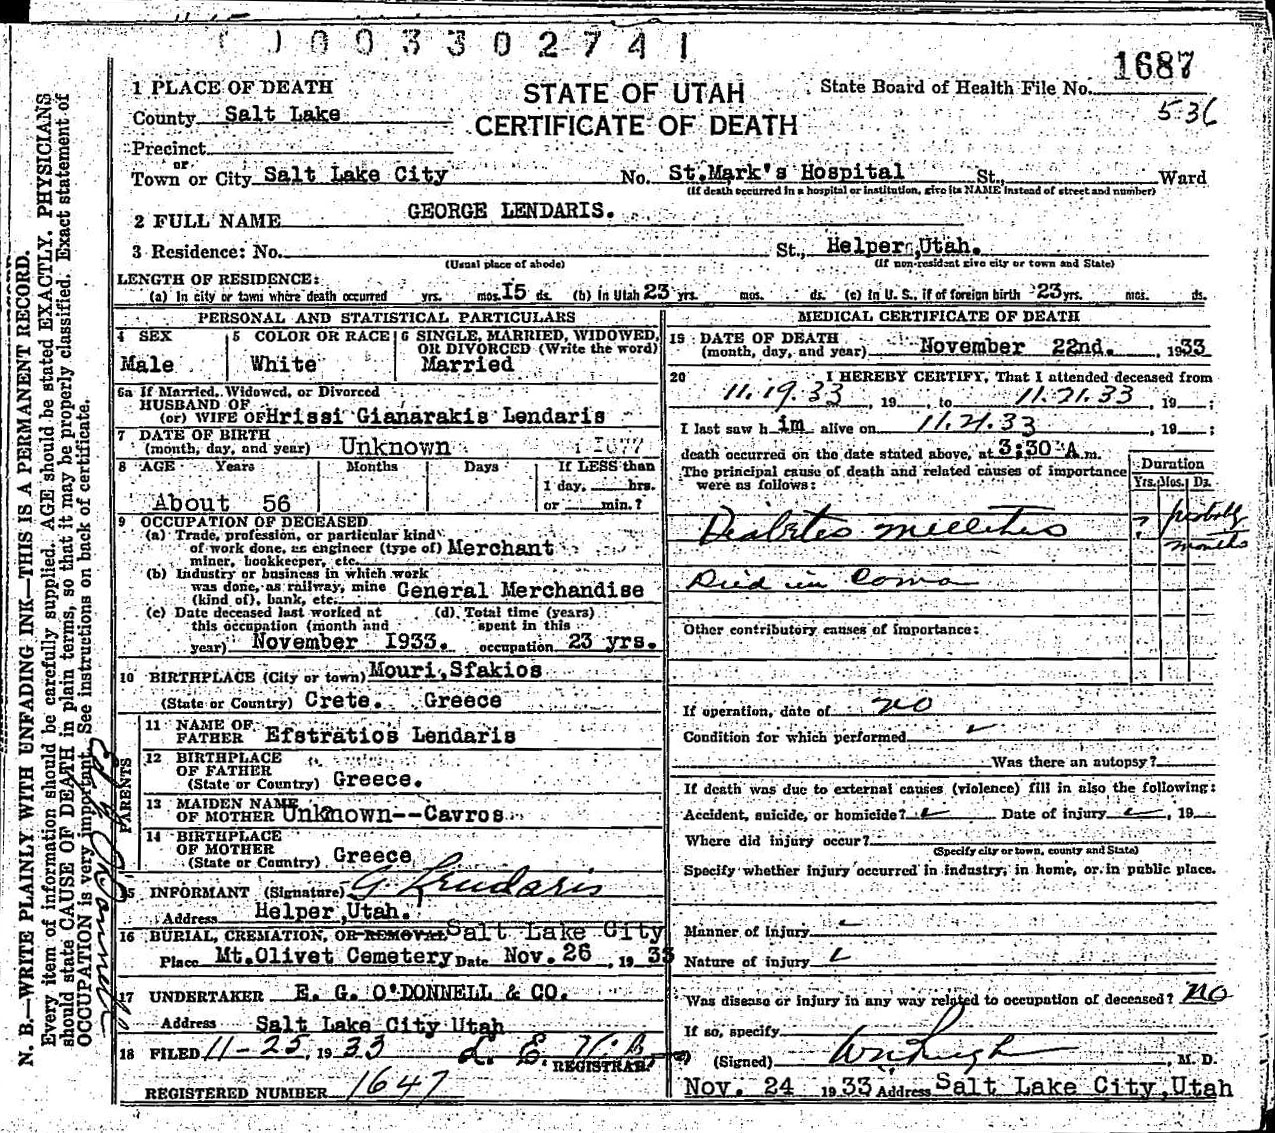 0 0 3 3 0 2 7 4 1
1687
1 PLACE OF DEATH
STATE OF UTAH
State Board of Health File No.
536
County Salt Lake
CERTIFICATE OF DEATH
Precinct
or
Town or City Salt Lake City No. St.Mark's Hospital St., Ward
(If death occurred in a hospital or institution, give its NAME instead of street and number)
2 FULL NAME GEORGE LENDARIS.
3 Residence: No. St., Helper,Utah.
(Usual place of abode) (If non-resident give city or town and State)
LENGTH OF RESIDENCE:
(a) In city or town where death occurred yrs. mos. 15 ds. (b) In Utah 23 yrs. mos. ds. (c) In U. S., if of foreign birth 23 yrs. mos. ds.
PERSONAL AND STATISTICAL PARTICULARS
4 SEX
Male
5 COLOR OR RACE
White
6 SINGLE, MARRIED, WIDOWED,
OR DIVORCED (Write the word)
Married
6a If Married, Widowed, or Divorced
HUSBAND OF
(or) WIFE OF Hrissi Gianarakis Lendaris
7 DATE OF BIRTH
(month, day, and year) Unknown 1877
8 AGE Years Months Days If LESS than
1 day, hrs.
About 56 or min.?
9 OCCUPATION OF DECEASED
(a) Trade, profession, or particular kind
of work done, as engineer (type of) Merchant
miner, bookkeeper, etc.
(b) Industry or business in which work
was done, as railway, mine General Merchandise
(kind of), bank, etc.
(c) Date deceased last worked at (d) Total time (years)
this occupation (month and spent in this
year) November 1933. occupation 23 yrs.
10 BIRTHPLACE (City or town) Mouri,Sfakios
(State or Country) Crete. Greece
PARENTS
11 NAME OF
FATHER Efstratios Lendaris
12 BIRTHPLACE
OF FATHER
(State or Country) Greece.
13 MAIDEN NAME
OF MOTHER Unknown--Cavros
14 BIRTHPLACE
OF MOTHER
(State or Country) Greece
15 INFORMANT (Signature) G. Lendaris
Address Helper,Utah.
16 BURIAL, CREMATION, OR REMOVAL Salt Lake City
Place Mt.Olivet Cemetery Date Nov. 26, 1933
17 UNDERTAKER E. G. O'DONNELL & CO.
Address Salt Lake City Utah
18 FILED 11-25, 1933
REGISTRAR
REGISTERED NUMBER 1647
MEDICAL CERTIFICATE OF DEATH
19 DATE OF DEATH
(month, day, and year) November 22nd. , 1933
20 I HEREBY CERTIFY, That I attended deceased from
11.19.33, 19 to 11.21.33, 19 ;
I last saw h im alive on 11.21.33, 19 ;
death occurred on the date stated above, at 3:30 A.m.
The principal cause of death and related causes of importance
were as follows:
Duration
Yrs. Mos. Ds.
Diabetes mellitus ? probably
months
Died in Coma
Other contributory causes of importance:
If operation, date of no
Condition for which performed
Was there an autopsy?
If death was due to external causes (violence) fill in also the following:
Accident, suicide, or homicide? Date of injury , 19
Where did injury occur?
(Specify city or town, county and State)
Specify whether injury occurred in industry, in home, or in public place.
Manner of injury
Nature of injury
Was disease or injury in any way related to occupation of deceased? No
If so, specify
(Signed) , M. D.
Nov. 24 1933 Address Salt Lake City,Utah
N. B.—WRITE PLAINLY WITH UNFADING INK—THIS IS A PERMANENT RECORD.
Every item of information should be carefully supplied. AGE should be stated EXACTLY. PHYSICIANS
should state CAUSE OF DEATH in plain terms, so that it may be properly classified. Exact statement of
OCCUPATION is very important. See instructions on back of certificate.